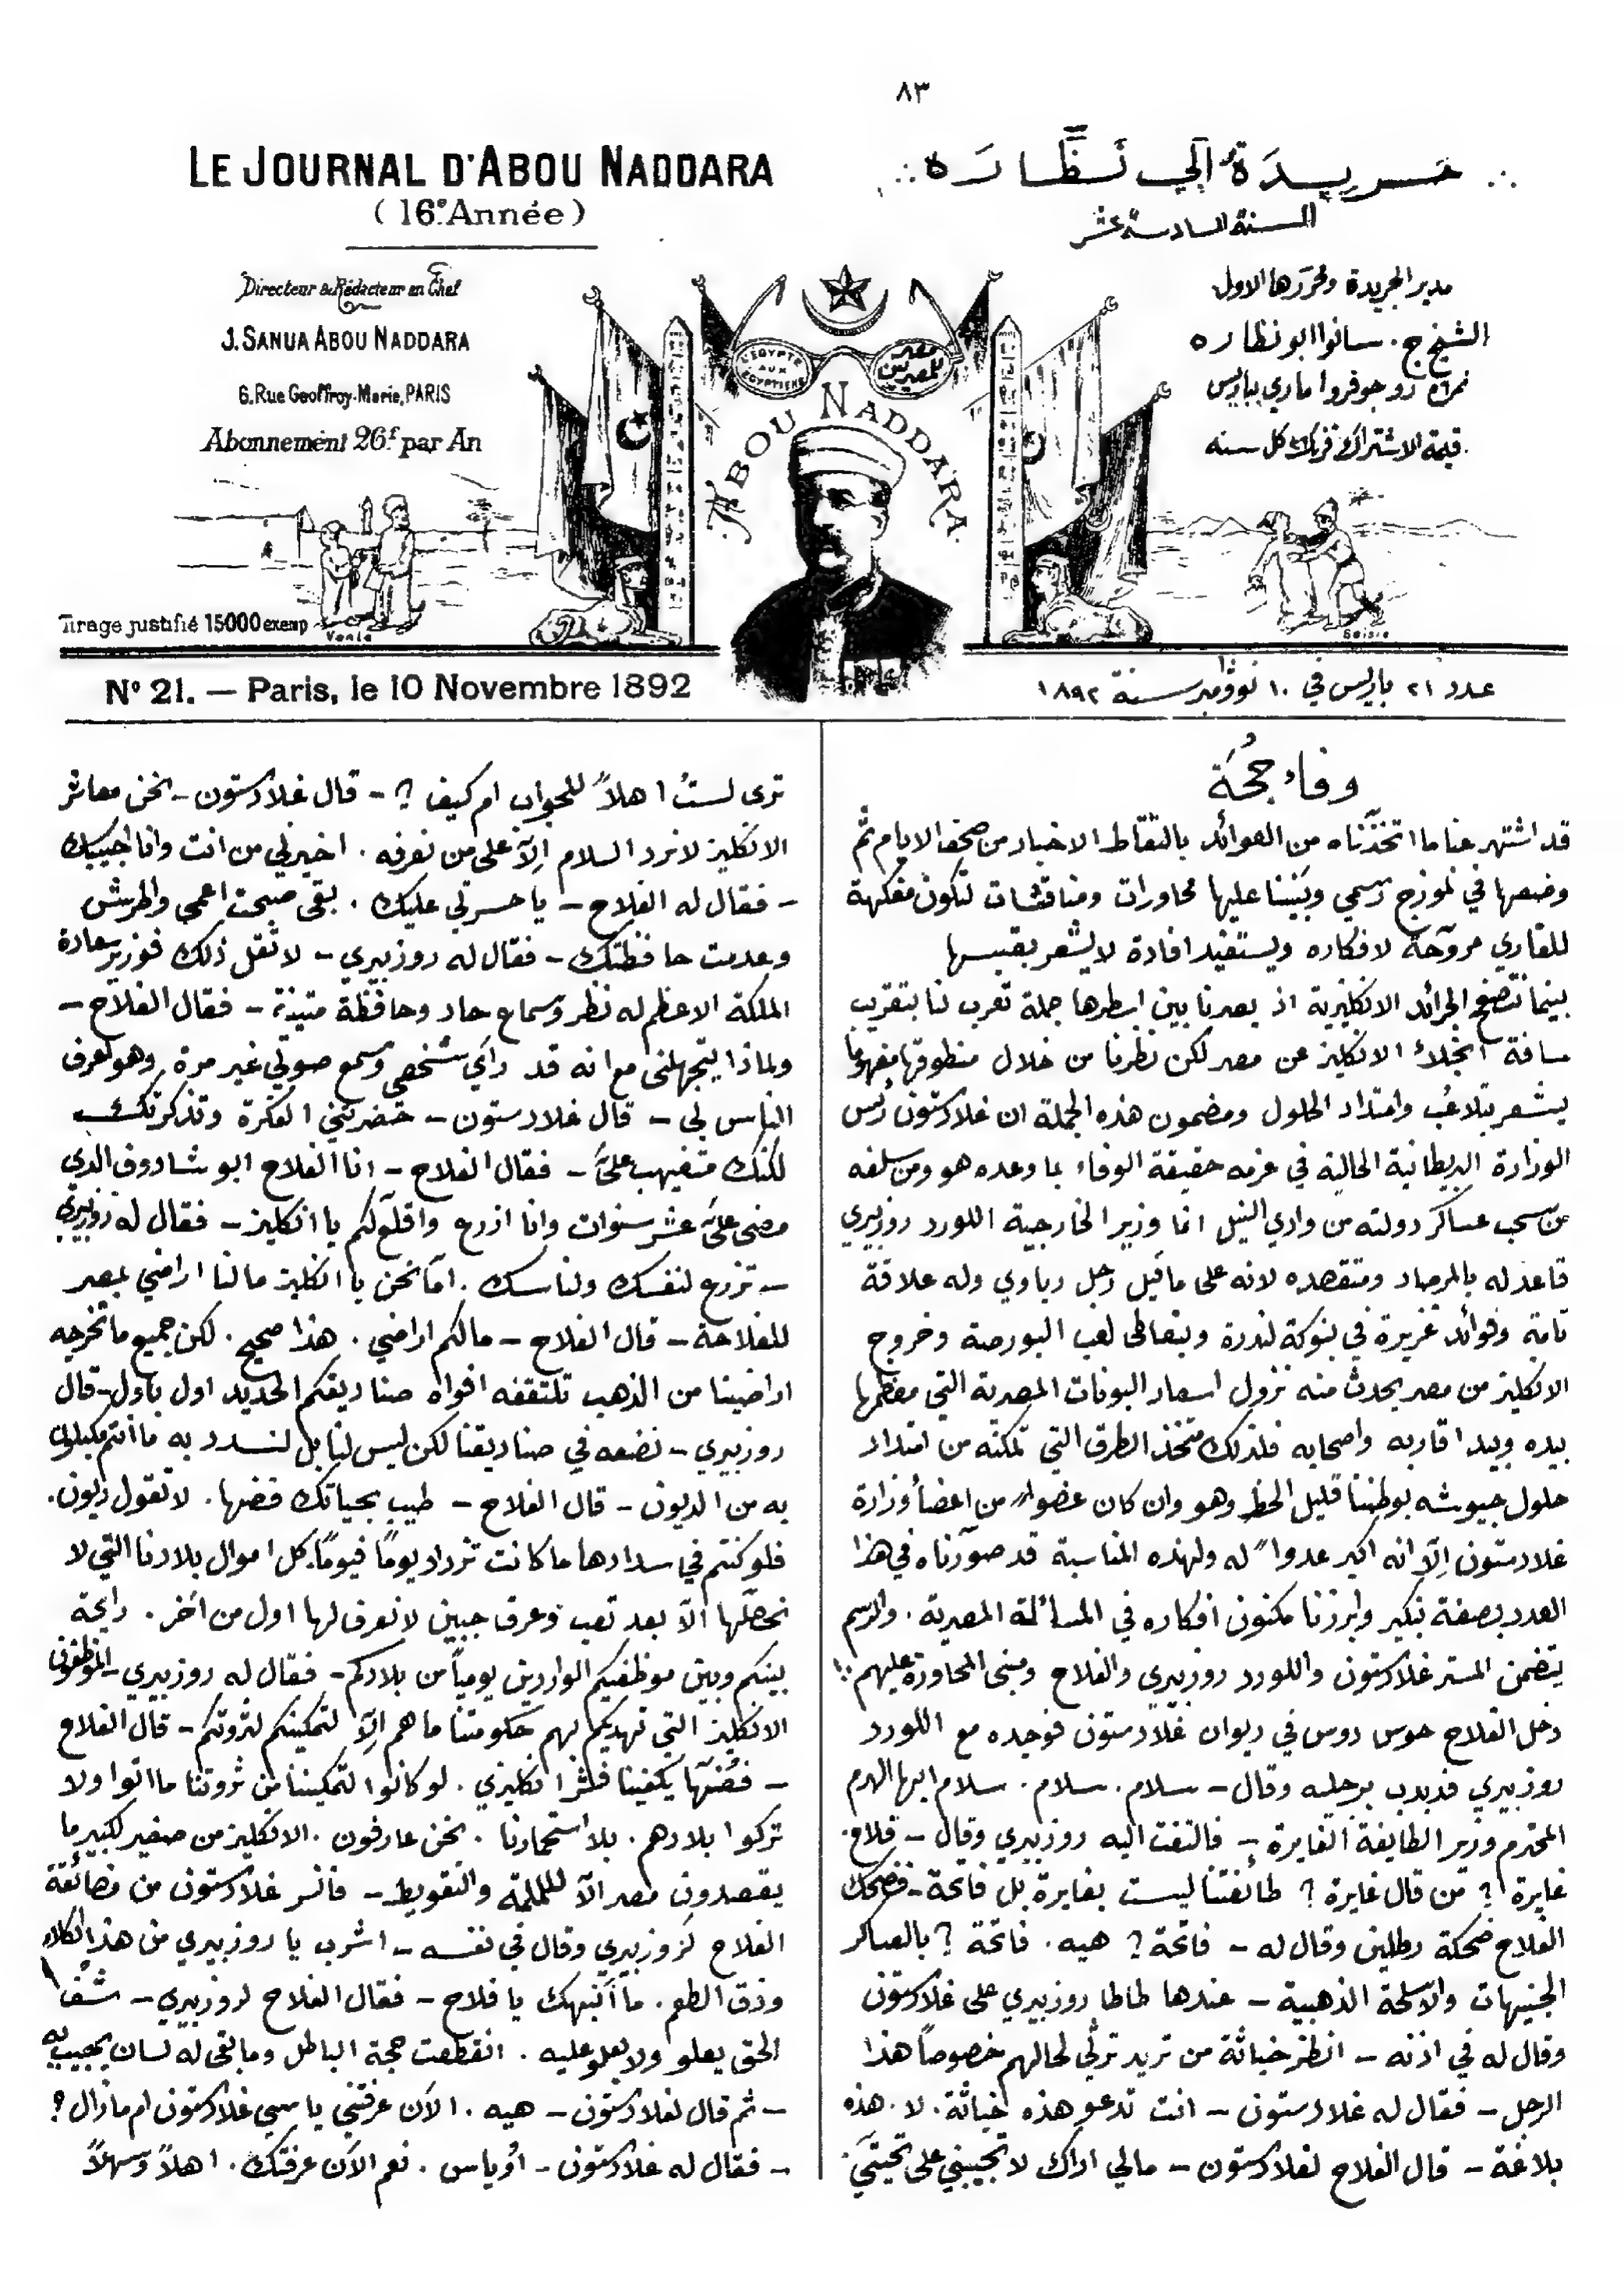 ٨٣
LE JOURNAL D'ABOU NADDARA
(16e Année)
جريدة ابي نظّارة
السنة السادسة عشر
Directeur & Rédacteur en Chef
J. SANUA ABOU NADDARA
6, Rue Geoffroy-Marie, PARIS
Abonnement 26f par An
Tirage justifié 15000 exemp
مدير الجريدة ومحررها الاول
الشيخ ج. سانوا ابو نظاره
نمرة ٦ رو جوفروا ماري بباريس
قيمة الاشتراك فرنك كل سنه
L'EGYPTE AUX EGYPTIENS
مصر للمصريين
ABOU NADDARA
N° 21. — Paris, le 10 Novembre 1892
عدد ٢١ باريس في ١٠ نوڤمبر سنة ١٨٩٢
وفاء حجة
قد اشتهر عنا ما اتخذناه من العوائد بالتقاط الاخبار من صحف الايام ثم
وضعها في نموذج رسمي وبنينا عليها محاورات ومناقشات لتكون مفكهة
للقاري مروحة لافكاره ويستفيد افادة لا يشعر بقيسها
بينما نتصفح الجرائد الانكليزية اذ بصرنا بين اسطرها جملة تعرب لنا بتقريب
مسافة انجلاء الانكليز عن مصر لكن نظرنا من خلال منطوقها مفهوما
يشعر بتلاعب وامتداد الحلول ومضمون هذه الجملة ان غلادستون رئس
الوزارة البريطانية الحالية في عزمه حقيقة الوفاء بما وعده هو ومن سلفه
من سحب عساكر دولته من وادي النيل انما وزير الخارجية اللورد روزبيري
قاعد له بالمرصاد ومتقصده لانه على ما قيل رجل رباوي وله علاقة
تامة وفوائد غزيرة في بنوكة لندرة ويتعاطى لعب البورصة وخروج
الانكليز من مصر يحدث منه نزول اسعار البونات المصرية التي معظمها
بيده وبيد اقاربه واصحابه فلذلك متخذ الطرق التي تمكنه من امتداد
حلول جيوشه بوطننا قليل الحظ وهو وان كان عضوا من اعضأ وزارة
غلادستون اِلّا انه اكبر عدوا له ولهذه المناسبة قد صورناه في هذا
العدد بصفة نكير وابرزنا مكنون افكاره في المسألة المصرية. والرسم
يتضمن المستر غلادستون واللورد روزبيري والفلاح ومبنى المحاورة عليهم
دخل الفلاح حوس دوس في ديوان غلادستون فوجده مع اللورد
روزبيري فدبدب برجله وقال - سلام. سلام. سلام ايها الهرم
المحترم وزير الطايفة الغايرة - فالتفت اليه روزبيري وقال - فلاح.
غايرة؟ من قال غايرة؟ طائفتنا ليست بغايرة بل فاتحة - فضحك
الفلاح ضحكة رطلين وقال له - فاتحة؟ هيه. فاتحة؟ بالعساكر
الجنيهات والاسلحة الذهبية - عندها طاطا روزبيري على غلادستون
وقال له في اذنه - انظر خباثة من تريد ترثي لحالهم خصوصاً هذا
الرجل - فقال له غلادستون - انت تدعو هذه خباثة. لا. هذه
بلاغة - قال الفلاح لغلادستون - مالي اراك لا تجيبني على تحيتي.
ترى لستُ اهلاً للجواب ام كيف؟ - قال غلادستون - نحن معاشر
الانكليز لا نرد السلام اِلّا على من نعرفه. اخبرني من انت وانا اجيبك
- فقال له الفلاح - يا حسرتي عليك. بقى صبحت اعمي واطرش
وعدمت حافظتك - فقال له روزبيري - لا تقل ذلك فوزير سعادة
الملكة الاعظم له نظر وسماع حاد وحافظة متينة - فقال الفلاح -
ولماذا يتجهلنى مع انه قد رأي شخصي وسمع صوتي غير مرة وهو اعرف
الناس بي - قال غلادستون - حضرتني الفكرة وتذكرتك
لكنك متغيب عليّ - فقال الفلاح - انا الفلاح ابو شادوف الذي
مضى عليّ عشر سنوات وانا ازرع واقلع لكم يا انكليز - فقال له روزبيري
- تزرع لنفسك ولناسك. اما نحن يا انكليز ما لنا اراضي بمصر
للفلاحة - قال الفلاح - ما لكم اراضي. هذا صحيح. لكن جميع ما تخرجه
اراضينا من الذهب تلتقفه افواه صناديقكم الحديد اول باول - قال
روزبيري - نضعه في صناديقنا لكن ليس لنا بل لنسدد به ما انتم مكبلون
به من الديون - قال الفلاح - طيب بحياتك فضها. لا تقول ديون.
فلو كنتم في سدادها ما كانت تزداد يوماً فيوماً. كل اموال بلادنا التي لا
نحصلها الّا بعد تعب وعرق جبين لا نعرف لها اول من آخر. رايحة
بينكم وبين موظفيكم الواردين يومياً من بلادكم - فقال له روزبيري - الموظفون
الانكليز التي تهديكم لهم حكومتنا ما هم اِلّا لتمكينكم لثروتكم - قال الفلاح
- فضها يكفينا فشر انكليزي. لو كانوا لتمكيننا من ثروتنا ما اتوا ولا
تركوا بلادهم. بلا استحمارنا. نحن عارفون. الانكليز من صغير لكبير ما
يقصدون مصر الّا للملمة والتقويط - فانسر غلادستون من فصائحة
الفلاح لروزبيري وقال في نفسه - اشرب يا روزبيري من هذا الكلام
وذق الطعم. ما انبهك يا فلاح - فقال الفلاح لروزبيري - شف
الحق يعلو ولا يعلو عليه. انقطعت حجة الباطل وما بقى له لسان يجيب به
- ثم قال لغلادستون - هيه. الآن عرفتني يا سي غلادستون ام ما زال؟
- فقال له غلادستون - اوياس. نعم الآن عرفتك. اهلاً وسهلاً